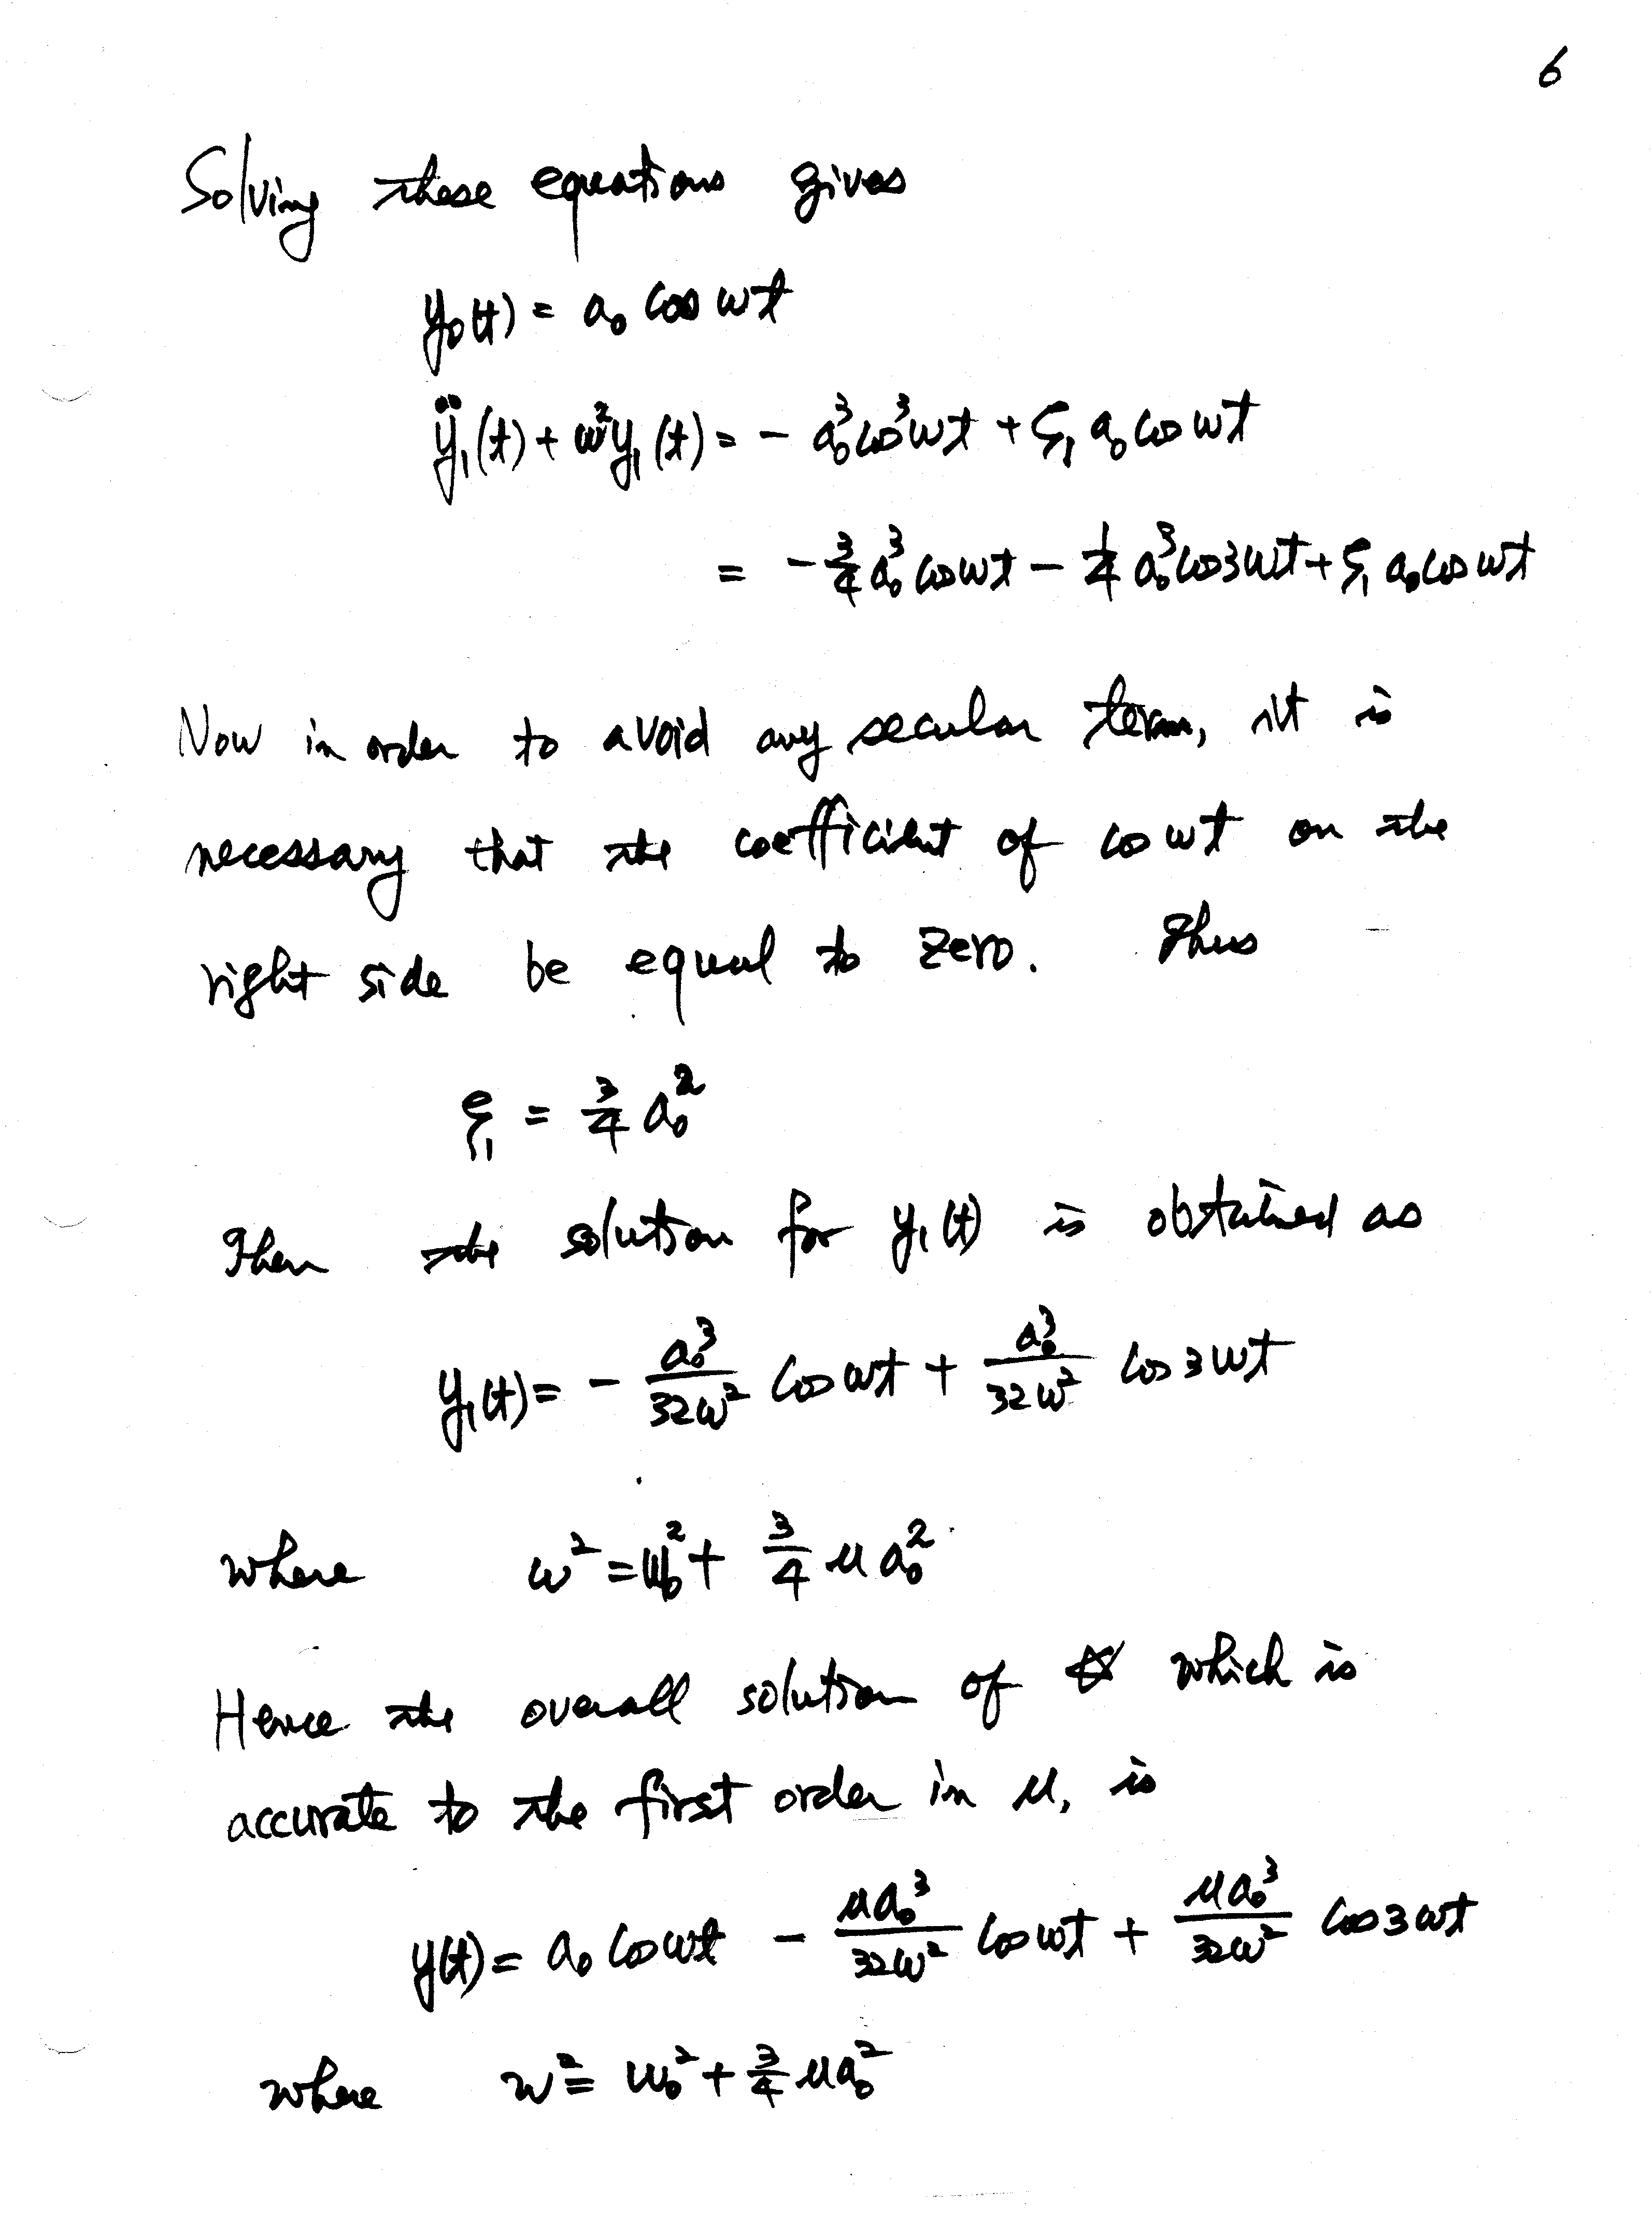 6
Solving these equations gives
y₀(t) = a₀ cos ωt
ÿ₁(t) + ω²y₁(t) = - a₀³cos³ωt + ξ₁ a₀ cos ωt
= - 3/4 a₀³ cos ωt - 1/4 a₀³ cos3ωt + ξ₁ a₀ cos ωt
Now in order to avoid any secular term, it is
necessary that the coefficient of cos ωt on the
right side be equal to zero. Thus
ξ₁ = 3/4 a₀²
Then the solution for y₁(t) is obtained as
y₁(t) = - a₀³/32ω² cos ωt + a₀³/32ω² cos 3ωt
where ω² = ω₀² + 3/4 μ a₀²
Hence the overall solution of which is
accurate to the first order in μ, is
y(t) = a₀ cos ωt - μa₀³/32ω² cos ωt + μa₀³/32ω² cos 3ωt
where ω² = ω₀² + 3/4 μa₀²